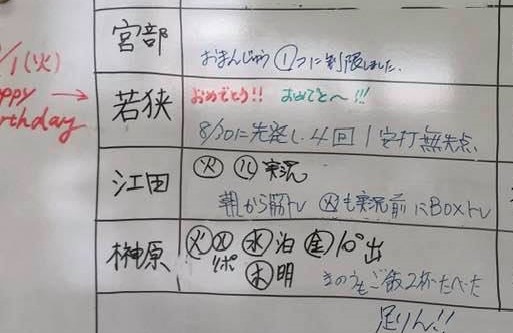 宮部
おまんじゅう①つに制限しました。
/1(火)
ppy → 若狭
rthday
おめでとう!! おめでと〜!!!
8/30に先発し、4回1安打無失点
江田
㊋ ㋸ 実況
朝から筋トレ ㊋も実況前にBOXトレ
榊原
㊋ ㊌泊 ㊎10°出
リポ ㊍明
きのうもご飯2杯たべた
足りん!!